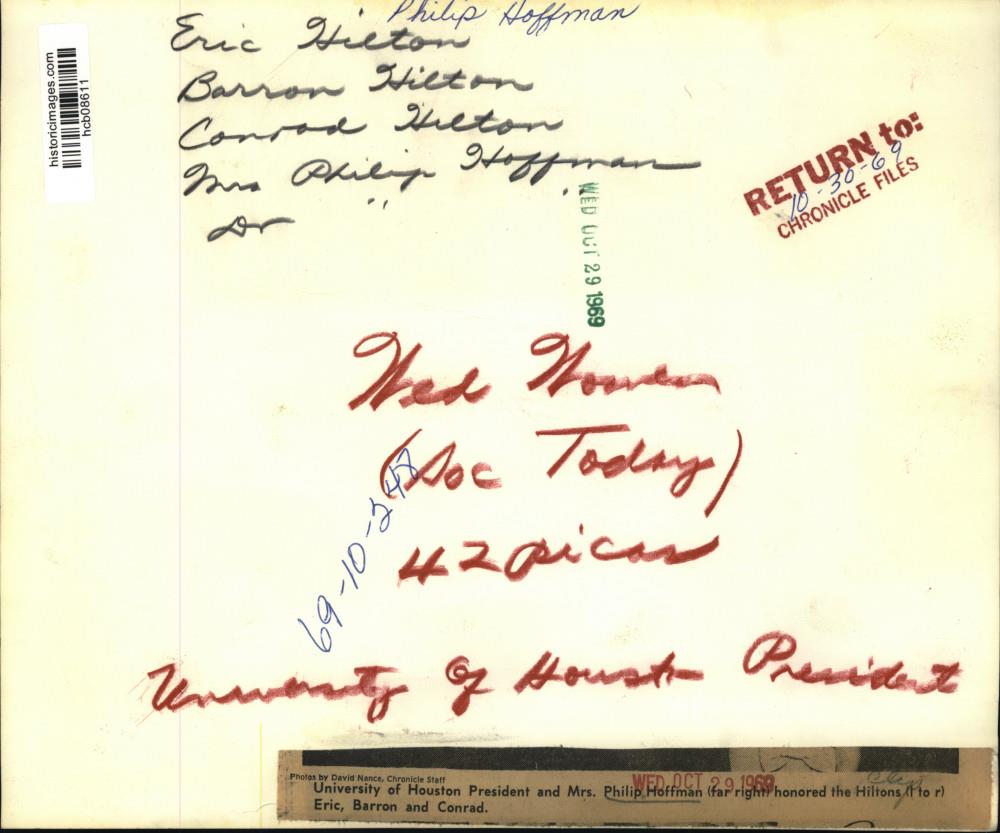 Philip Hoffman
Eric Hilton
Barron Hilton
Conrad Hilton
Mrs Philip Hoffman
Dr " "
historicimages.com
hcb08611
RETURN to:
10-30-69
CHRONICLE FILES
WED OCT 29 1969
Wed Women
(Soc Today)
42 picas
69-10-248
University Of Houston President
Photos by David Nance, Chronicle Staff
WED OCT 29 1969
clip
University of Houston President and Mrs. Philip Hoffman (far right) honored the Hiltons (l to r)
Eric, Barron and Conrad.